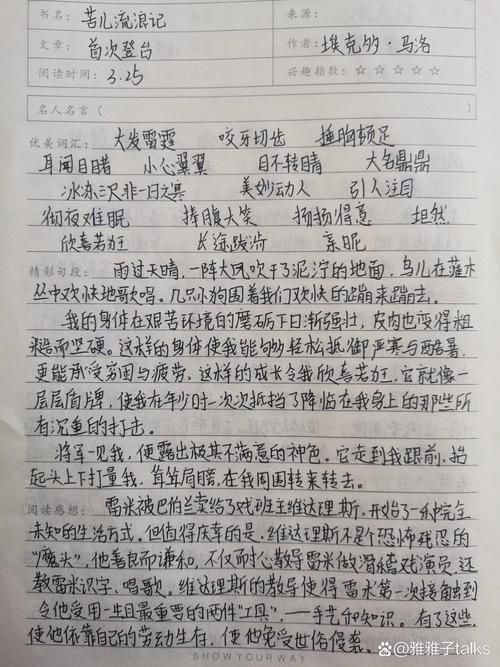 书名：苦儿流浪记 来源：
文章：首次登台 作者：埃克多·马洛
阅读时间：3.25 兴趣指数：☆☆☆☆☆
名人名言（ ）
优美词汇： 大发雷霆 咬牙切齿 捶胸顿足
耳闻目睹 小心翼翼 目不转睛 大名鼎鼎
冰冻三尺非一日之寒 美妙动人 引人注目
彻夜难眠 捧腹大笑 扬扬得意 坦然
欣喜若狂 长途跋涉 亲昵
精彩句段： 雨过天晴，一阵大风吹干了泥泞的地面，鸟儿在灌木
丛中欢快地歌唱。几只小狗围着我们欢快的蹦来蹦去。
我的身体在艰苦环境的磨砺下日渐强壮，皮肉也变得粗
糙而坚硬。这样的身体使我能够轻松抵御严寒与酷暑，
更能承受穷困与疲劳。这样的成长令我欣喜若狂，它就像一
层层盾牌，使我在年少时一次次抵挡了降临在我身上的那些所
有沉重的打击。
将军一见我，便露出极其不满意的神色。它走到我跟前，抬
起头上下打量我，耸耸肩膀，在我周围转来转去。
阅读感想： 雷米被巴伯兰卖给了戏班主维达理斯，开始了一种完全
未知的生活方式。但值得庆幸的是，维达理斯不是个恐怖残忍的
“魔头”，他善良而谦和，不仅耐心教导雷米做滑稽戏演员，还
教雷米识字、唱歌。维达理斯的教导使得雷米第一次接触到
令他受用一生且最重要的两件“工具”，——手艺和知识。有了这些，
使他依靠自己的劳动生存，使他免受世俗侵袭。
SHOW YOUR WAY
@雅雅子talks